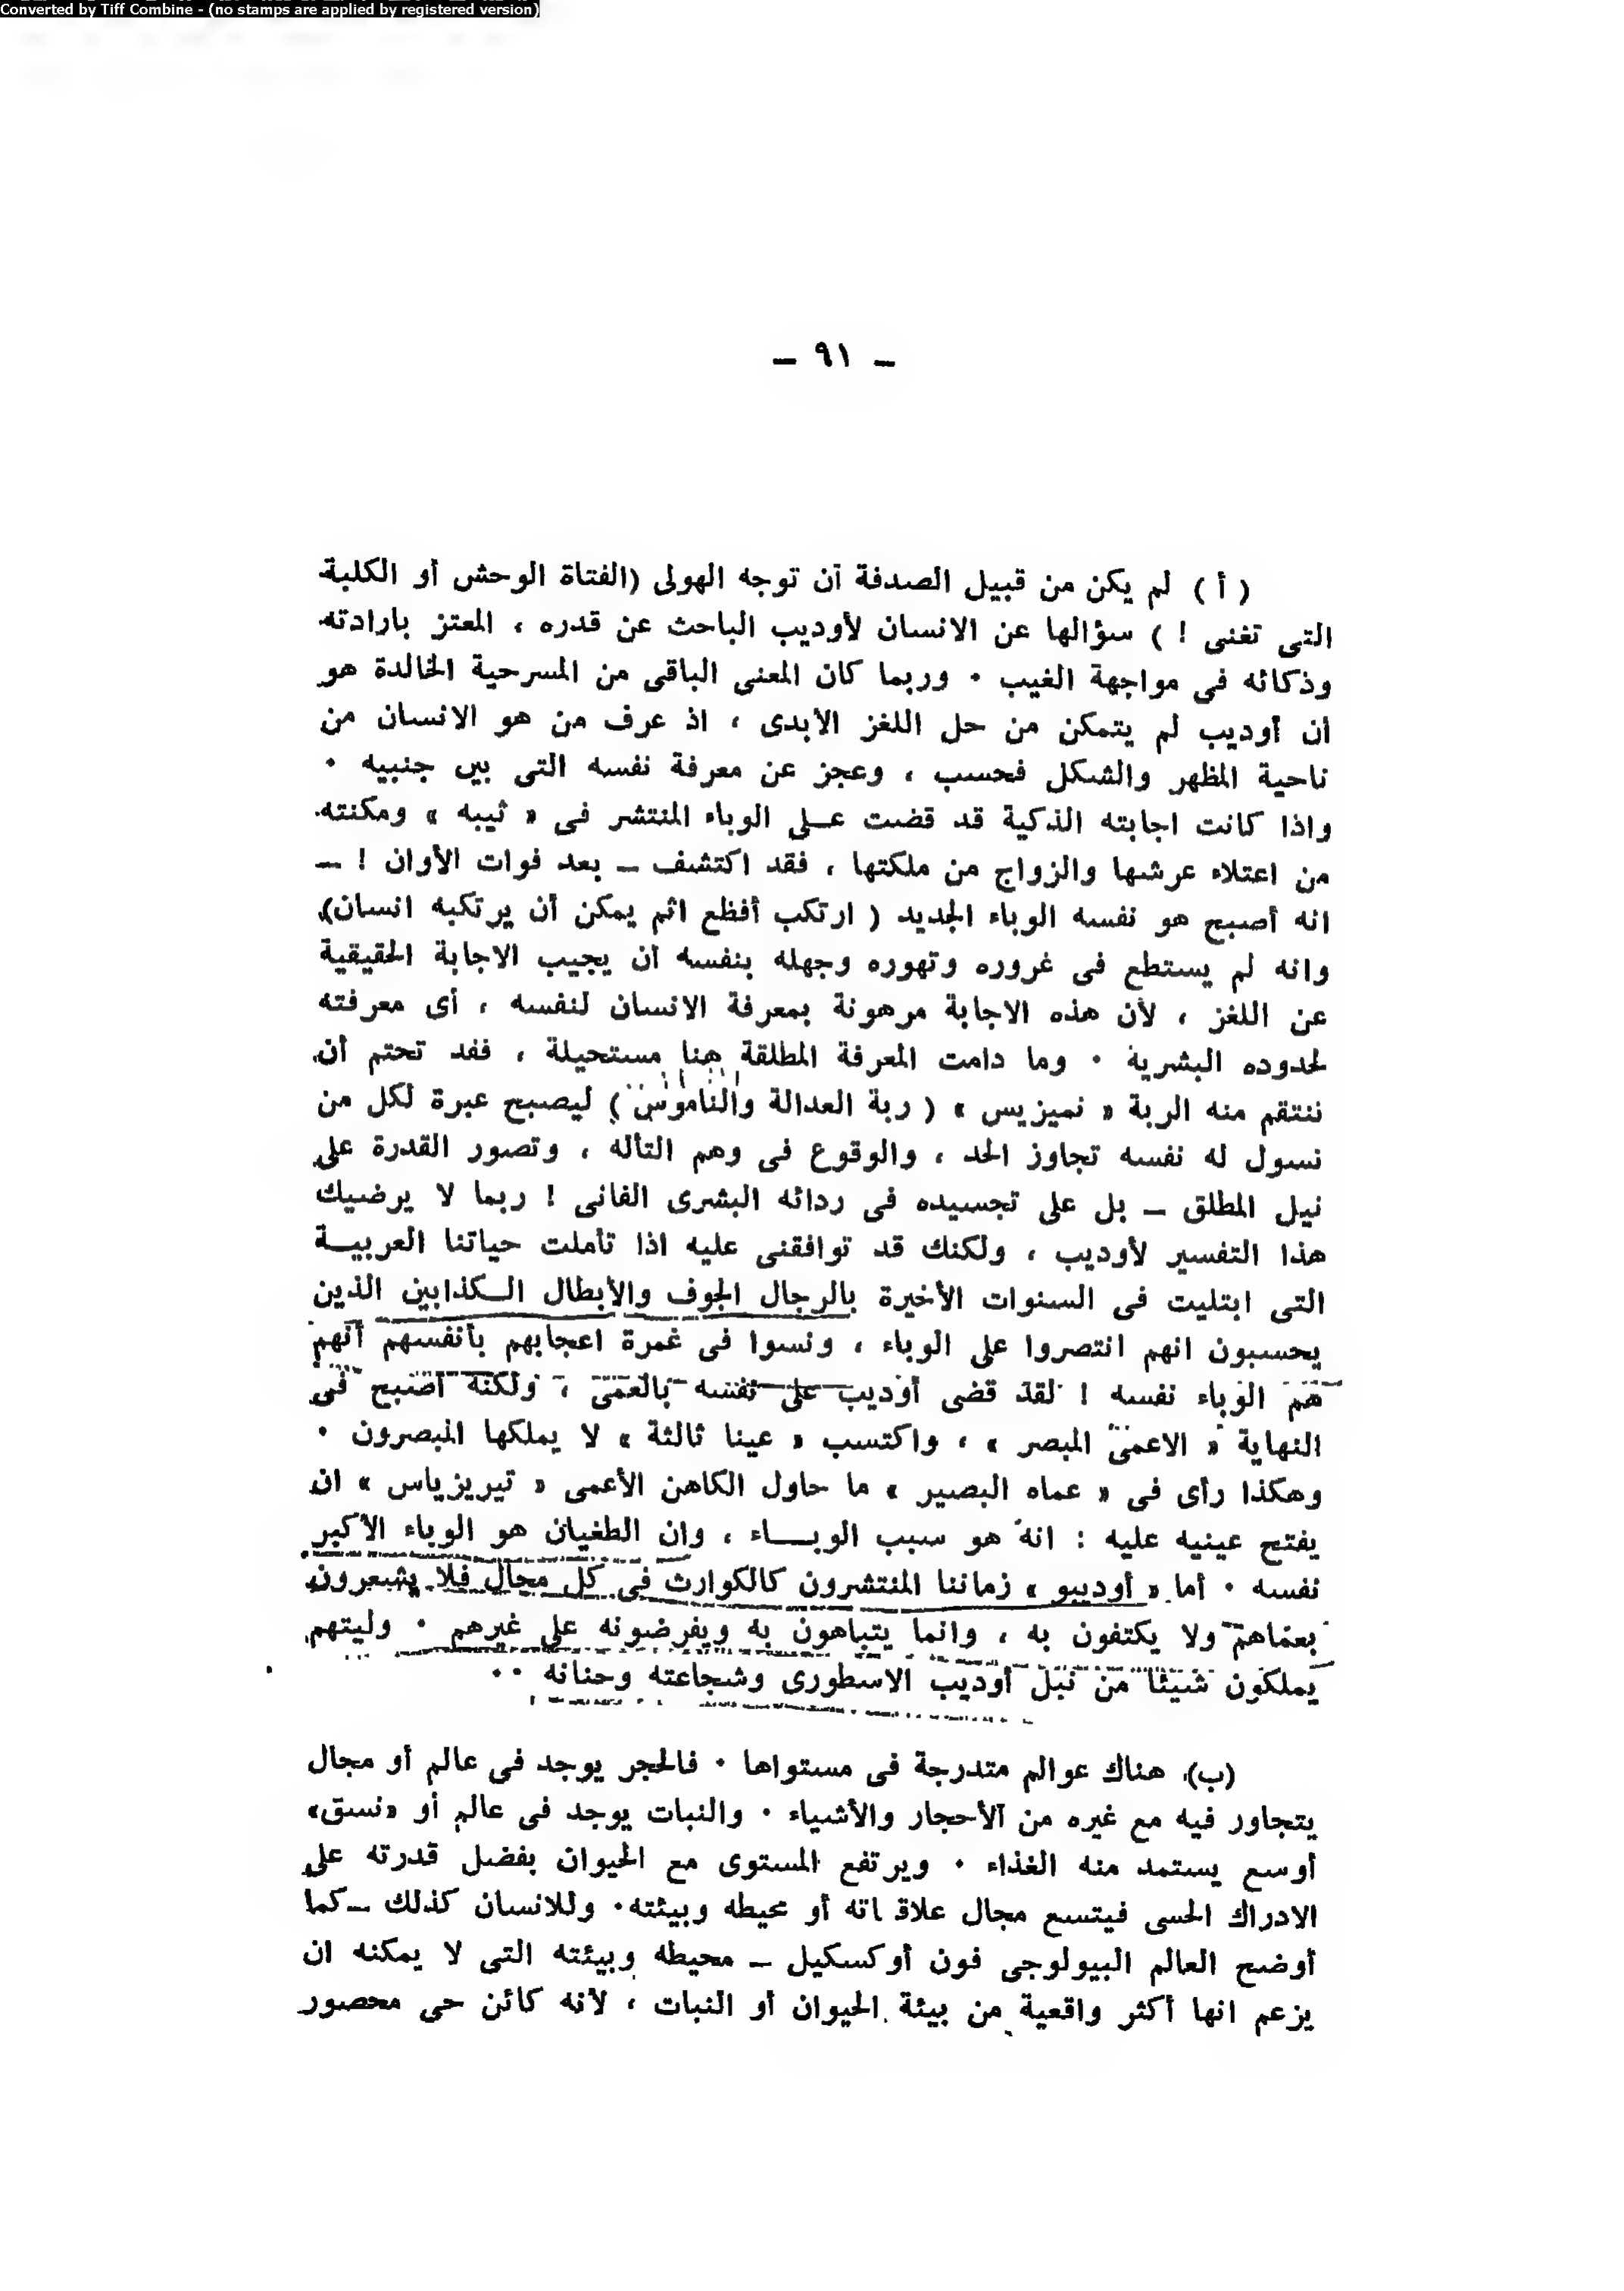 Converted by Tiff Combine - (no stamps are applied by registered version)
— ٩١ —
( أ ) لم يكن من قبيل الصدفة أن توجه الهولى (الفتاة الوحش أو الكلبة
التى تغنى ! ) سؤالها عن الانسان لأوديب الباحث عن قدره ، المعتز بارادته
وذكائه فى مواجهة الغيب ٠ وربما كان المعنى الباقى من المسرحية الخالدة هو
أن أوديب لم يتمكن من حل اللغز الأبدى ، اذ عرف من هو الانسان من
ناحية المظهر والشكل فحسب ، وعجز عن معرفة نفسه التى بين جنبيه ٠
واذا كانت اجابته الذكية قد قضت على الوباء المنتشر فى « ثيبه » ومكنته
من اعتلاء عرشها والزواج من ملكتها ، فقد اكتشف — بعد فوات الأوان ! —
انه أصبح هو نفسه الوباء الجديد ( ارتكب أفظع اثم يمكن أن يرتكبه انسان)
وانه لم يستطع فى غروره وتهوره وجهله بنفسه أن يجيب الاجابة الحقيقية
عن اللغز ، لأن هذه الاجابة مرهونة بمعرفة الانسان لنفسه ، أى معرفته
لحدوده البشرية ٠ وما دامت المعرفة المطلقة هنا مستحيلة ، فقد تحتم أن
تنتقم منه الربة « نميزيس » ( ربة العدالة والناموس ) ليصبح عبرة لكل من
تسول له نفسه تجاوز الحد ، والوقوع فى وهم التأله ، وتصور القدرة على
نيل المطلق — بل على تجسيده فى ردائه البشرى الفانى ! ربما لا يرضيك
هذا التفسير لأوديب ، ولكنك قد توافقنى عليه اذا تأملت حياتنا العربية
التى ابتليت فى السنوات الأخيرة بالرجال الجوف والأبطال الكذابين الذين
يحسبون انهم انتصروا على الوباء ، ونسوا فى غمرة اعجابهم بأنفسهم أنهم
هم الوباء نفسه ! لقد قضى أوديب على نفسه بالعمى ، ولكنه أصبح فى
النهاية « الاعمى المبصر » ، واكتسب « عينا ثالثة » لا يملكها المبصرون ٠
وهكذا رأى فى « عماه البصير » ما حاول الكاهن الأعمى « تيريزياس » ان
يفتح عينيه عليه : انه هو سبب الوباء ، وان الطغيان هو الوباء الأكبر
نفسه ٠ أما « أوديبو » زماننا المنتشرون كالكوارث فى كل مجال فلا يشعرون
بعماهم ولا يكتفون به ، وانما يتباهون به ويفرضونه على غيرهم ٠ وليتهم
يملكون شيئا من نبل أوديب الاسطورى وشجاعته وحنانه ٠٠
(ب) هناك عوالم متدرجة فى مستواها ٠ فالحجر يوجد فى عالم أو مجال
يتجاور فيه مع غيره من الأحجار والأشياء ٠ والنبات يوجد فى عالم أو «نسق»
أوسع يستمد منه الغذاء ٠ ويرتفع المستوى مع الحيوان بفضل قدرته على
الادراك الحسى فيتسع مجال علاقاته أو محيطه وبيئته٠ وللانسان كذلك —كما
أوضح العالم البيولوجى فون أوكسكيل — محيطه وبيئته التى لا يمكنه ان
يزعم انها أكثر واقعية من بيئة الحيوان أو النبات ، لأنه كائن حى محصور